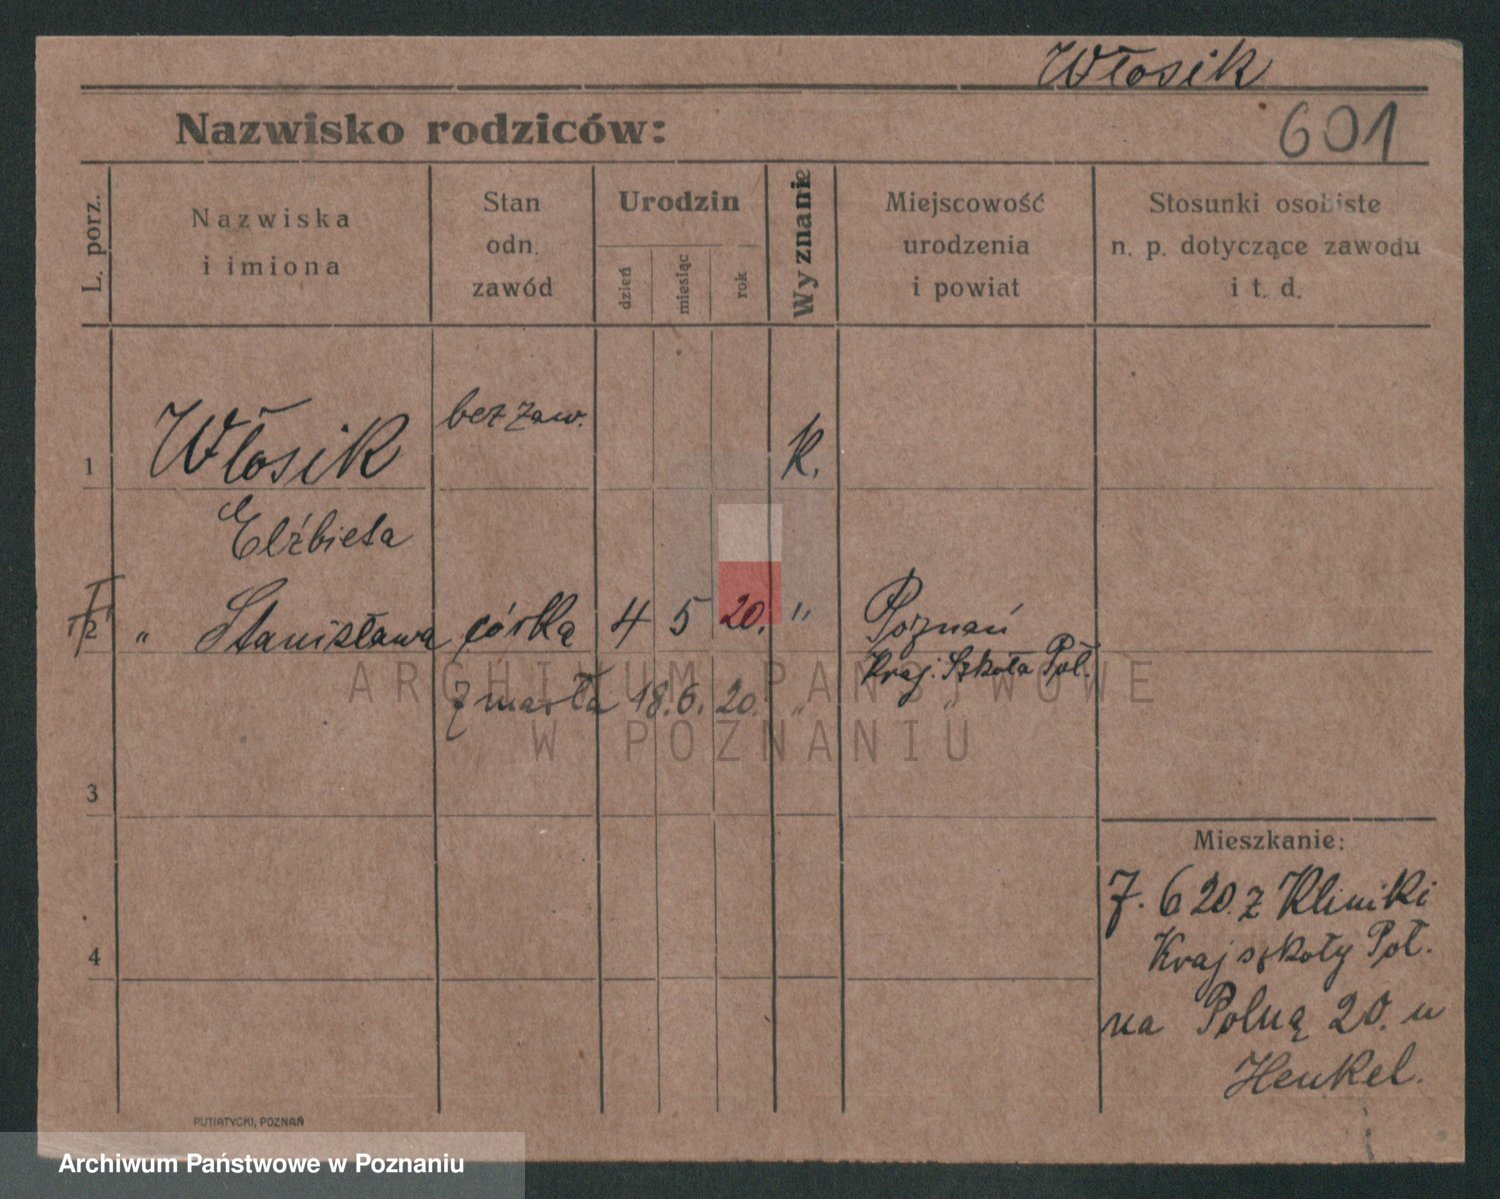 Włosik
Nazwisko rodziców:
601
L. porz.
Nazwiska
i imiona
Stan
odn.
zawód
Urodzin
dzień
miesiąc
rok
Wyznanie
Miejscowość
urodzenia
i powiat
Stosunki osobiste
n. p. dotyczące zawodu
i t. d.
1 Włosik bez zaw. k.
Elżbieta
2 " Stanisława córka 4 5 20. " Poznań
Kraj. Szkoła Poł.
zmarła 18.6.20. "
ARCHIWUM PAŃSTWOWE
W POZNANIU
3
Mieszkanie:
7. 6 20. z Kliniki
Kraj szkoły Poł.
4
na Polną 20. u
Henkel.
PUTIATYCKI, POZNAŃ
Archiwum Państwowe w Poznaniu